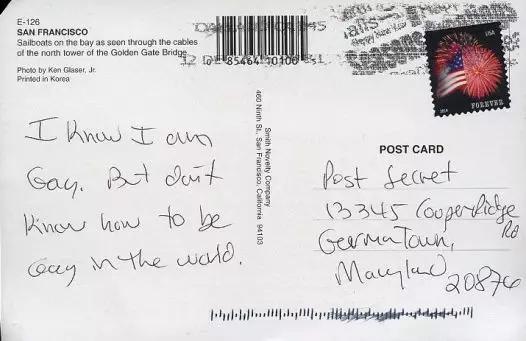 E-126
SAN FRANCISCO
Sailboats on the bay as seen through the cables
of the north tower of the Golden Gate Bridge.
Photo by Ken Glaser, Jr.
Printed in Korea
85464 10106
USA
FOREVER
Smith Novelty Company
460 Ninth St., San Francisco, California 94103
POST CARD
I know I am
Gay. But don't
know how to be
Gay in the world.
Post Secret
13345 Copper Ridge
Rd
GermanTown,
Maryland
20876